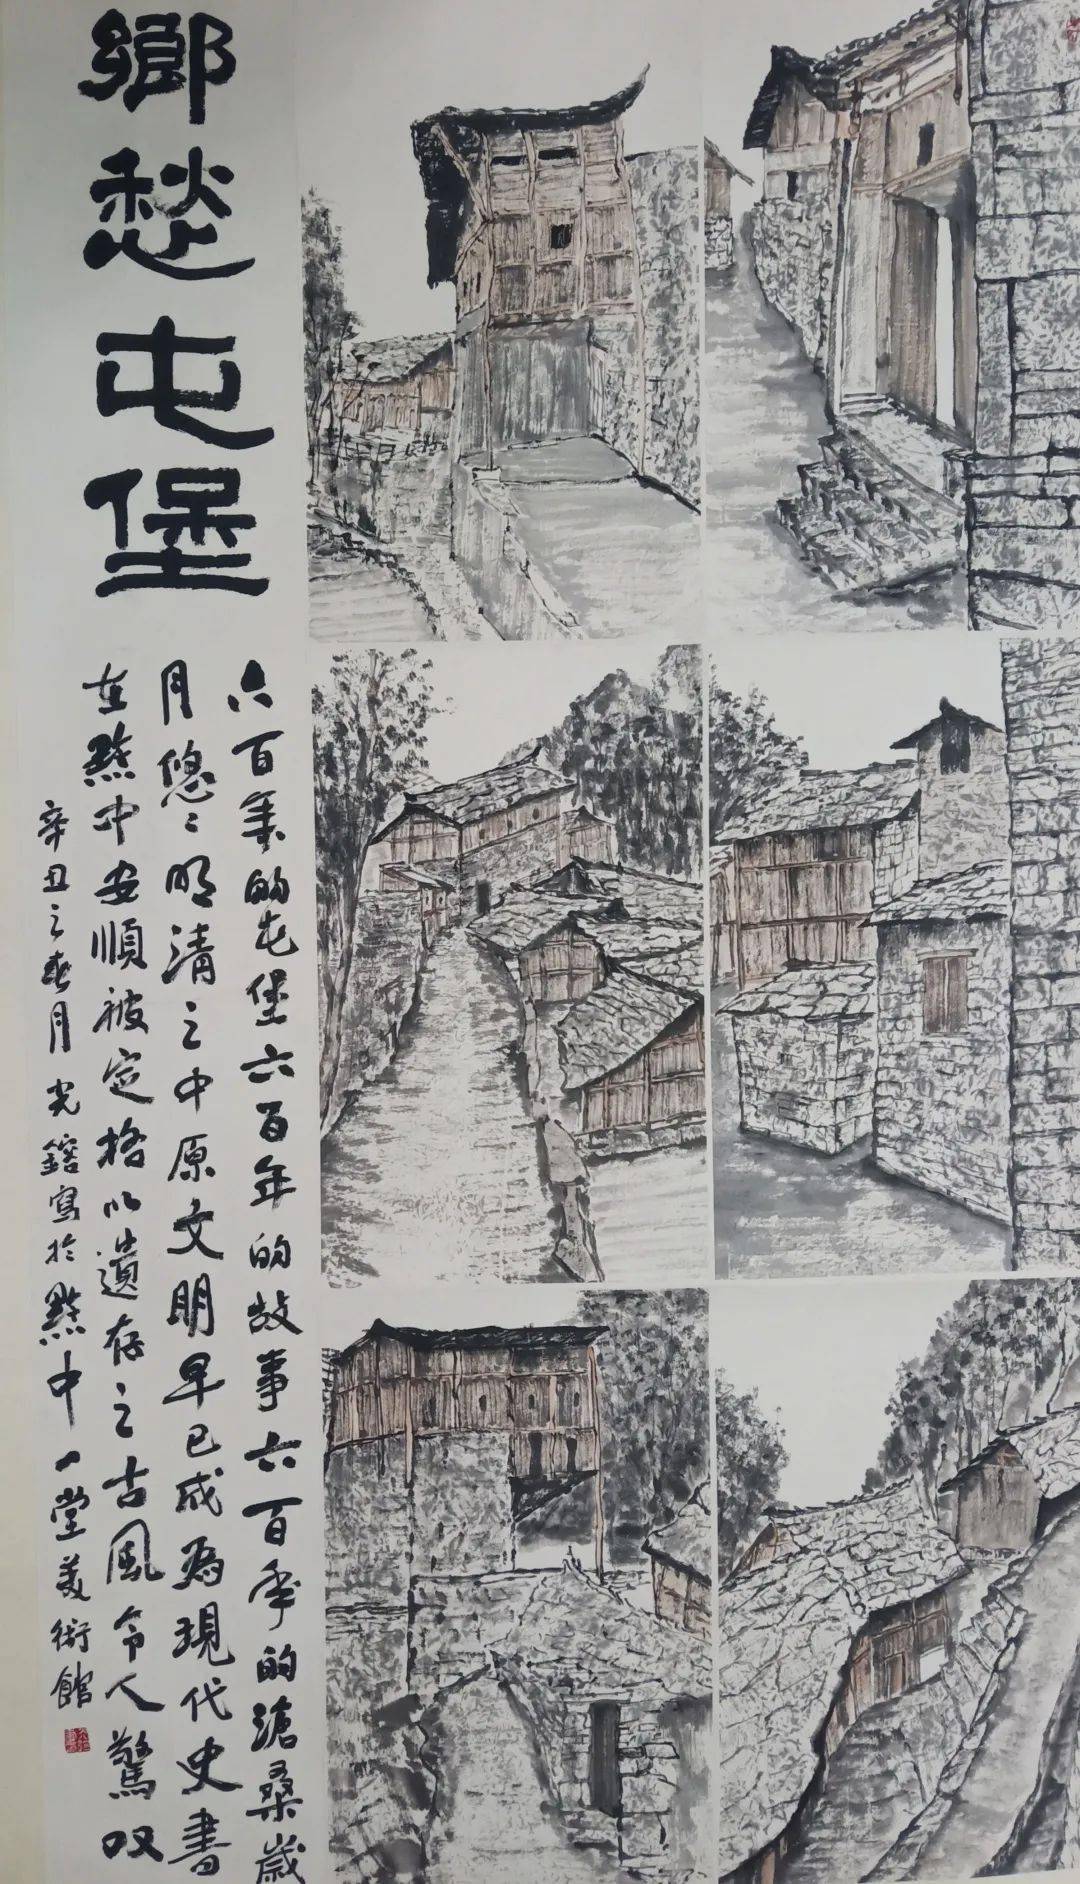 鄉愁屯堡
六百年的屯堡六百年的故事六百年的滄桑歲
月悠〻明清之中原文明早已成為現代史書
在黔中安順被定格以遺存之古風令人驚叹
辛丑之春月光鎔寫於黔中一堂美術館